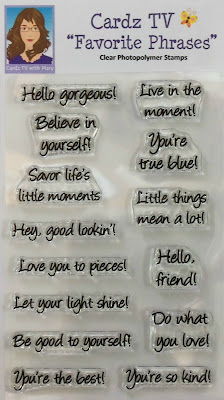 Cardz TV
"Favorite Phrases"
Clear Photopolymer Stamps
Cardz TV with Mary
Hello gorgeous!
Believe in
yourself!
Savor life's
little moments
Hey, good lookin'!
Love you to pieces!
Let your light shine!
Be good to yourself!
You're the best!
Live in the
moment!
You're
true blue!
Little things
mean a lot!
Hello,
friend!
Do what
you love!
You're so kind!